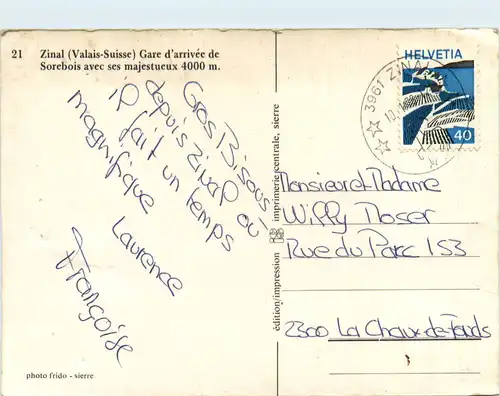 21 Zinal (Valais-Suisse) Gare d'arrivée de
Sorebois avec ses majestueux 4000 m.
Gros Bisous
depuis Zinal où
il fait un temps
magnifique
Laurence
Françoise
photo frido - sierre
édition/impression imprimerie centrale, sierre
3961 ZINAL
HELVETIA
40
Monsieur et Madame
Willy Moser
Rue du Parc 153
2300 La Chaux-de-Fonds